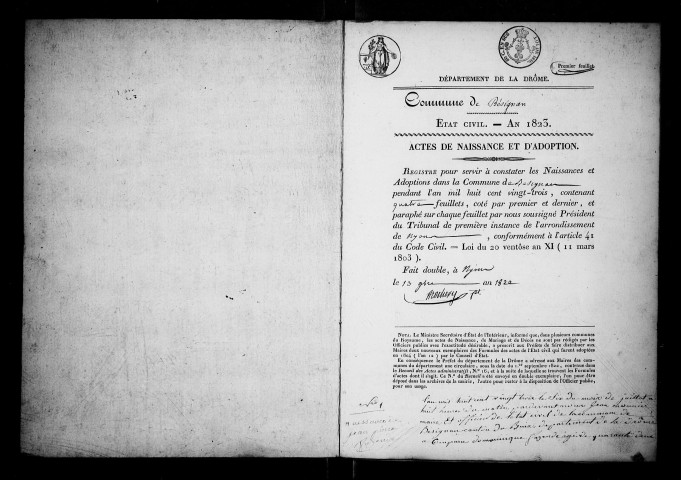 Premier feuillet
DÉPARTEMENT DE LA DRÔME.
Commune de Bésignan
ETAT CIVIL. — AN 1823.
ACTES DE NAISSANCE ET D'ADOPTION.
REGISTRE pour servir à constater les Naissances et
Adoptions dans la Commune de Besignan
pendant l'an mil huit cent vingt-trois, contenant
quatre feuillets, coté par premier et dernier, et
paraphé sur chaque feuillet par nous soussigné Président
du Tribunal de première instance de l'arrondissement
de Nyons, conformément à l'article 41
du Code Civil. — Loi du 20 ventôse an XI (11 mars
1803).
Fait double, à Nyons
le 13 9bre an 1822
NOTA. Le Ministre Secrétaire d'État de l'Intérieur, informé que, dans plusieurs communes
du Royaume, les actes de Naissance, de Mariage et de Décès ne sont pas rédigés par les
Officiers publics avec l'exactitude désirable, a prescrit aux Préfets de faire distribuer aux
Maires deux nouveaux exemplaires des Formules des actes de l'État civil qui furent adoptées
en 1804 (l'an 12) par le Conseil d'État.
En conséquence le Préfet du département de la Drôme a adressé aux Maires des com-
munes du département une circulaire, sous la date du 1.er septembre 1820, contenue dans
le Recueil des Actes administratifs, N.º 16, et à la suite de laquelle se trouvent les Formules
d'actes dont il s'agit. Ce N.º du Recueil a été envoyé en double exemplaire, l'un pour être
déposé dans les archives de la mairie, l'autre pour rester à la disposition de l'Officier public,
pour son usage.
L'an mil huit cent vingt trois le six du mois de juillet à
huit heures du matin pardevant nous
maire et officier de l'état civil de la commune de
Besignan canton du Buis département de la Drôme
Comparu dominique agé de quarante deux